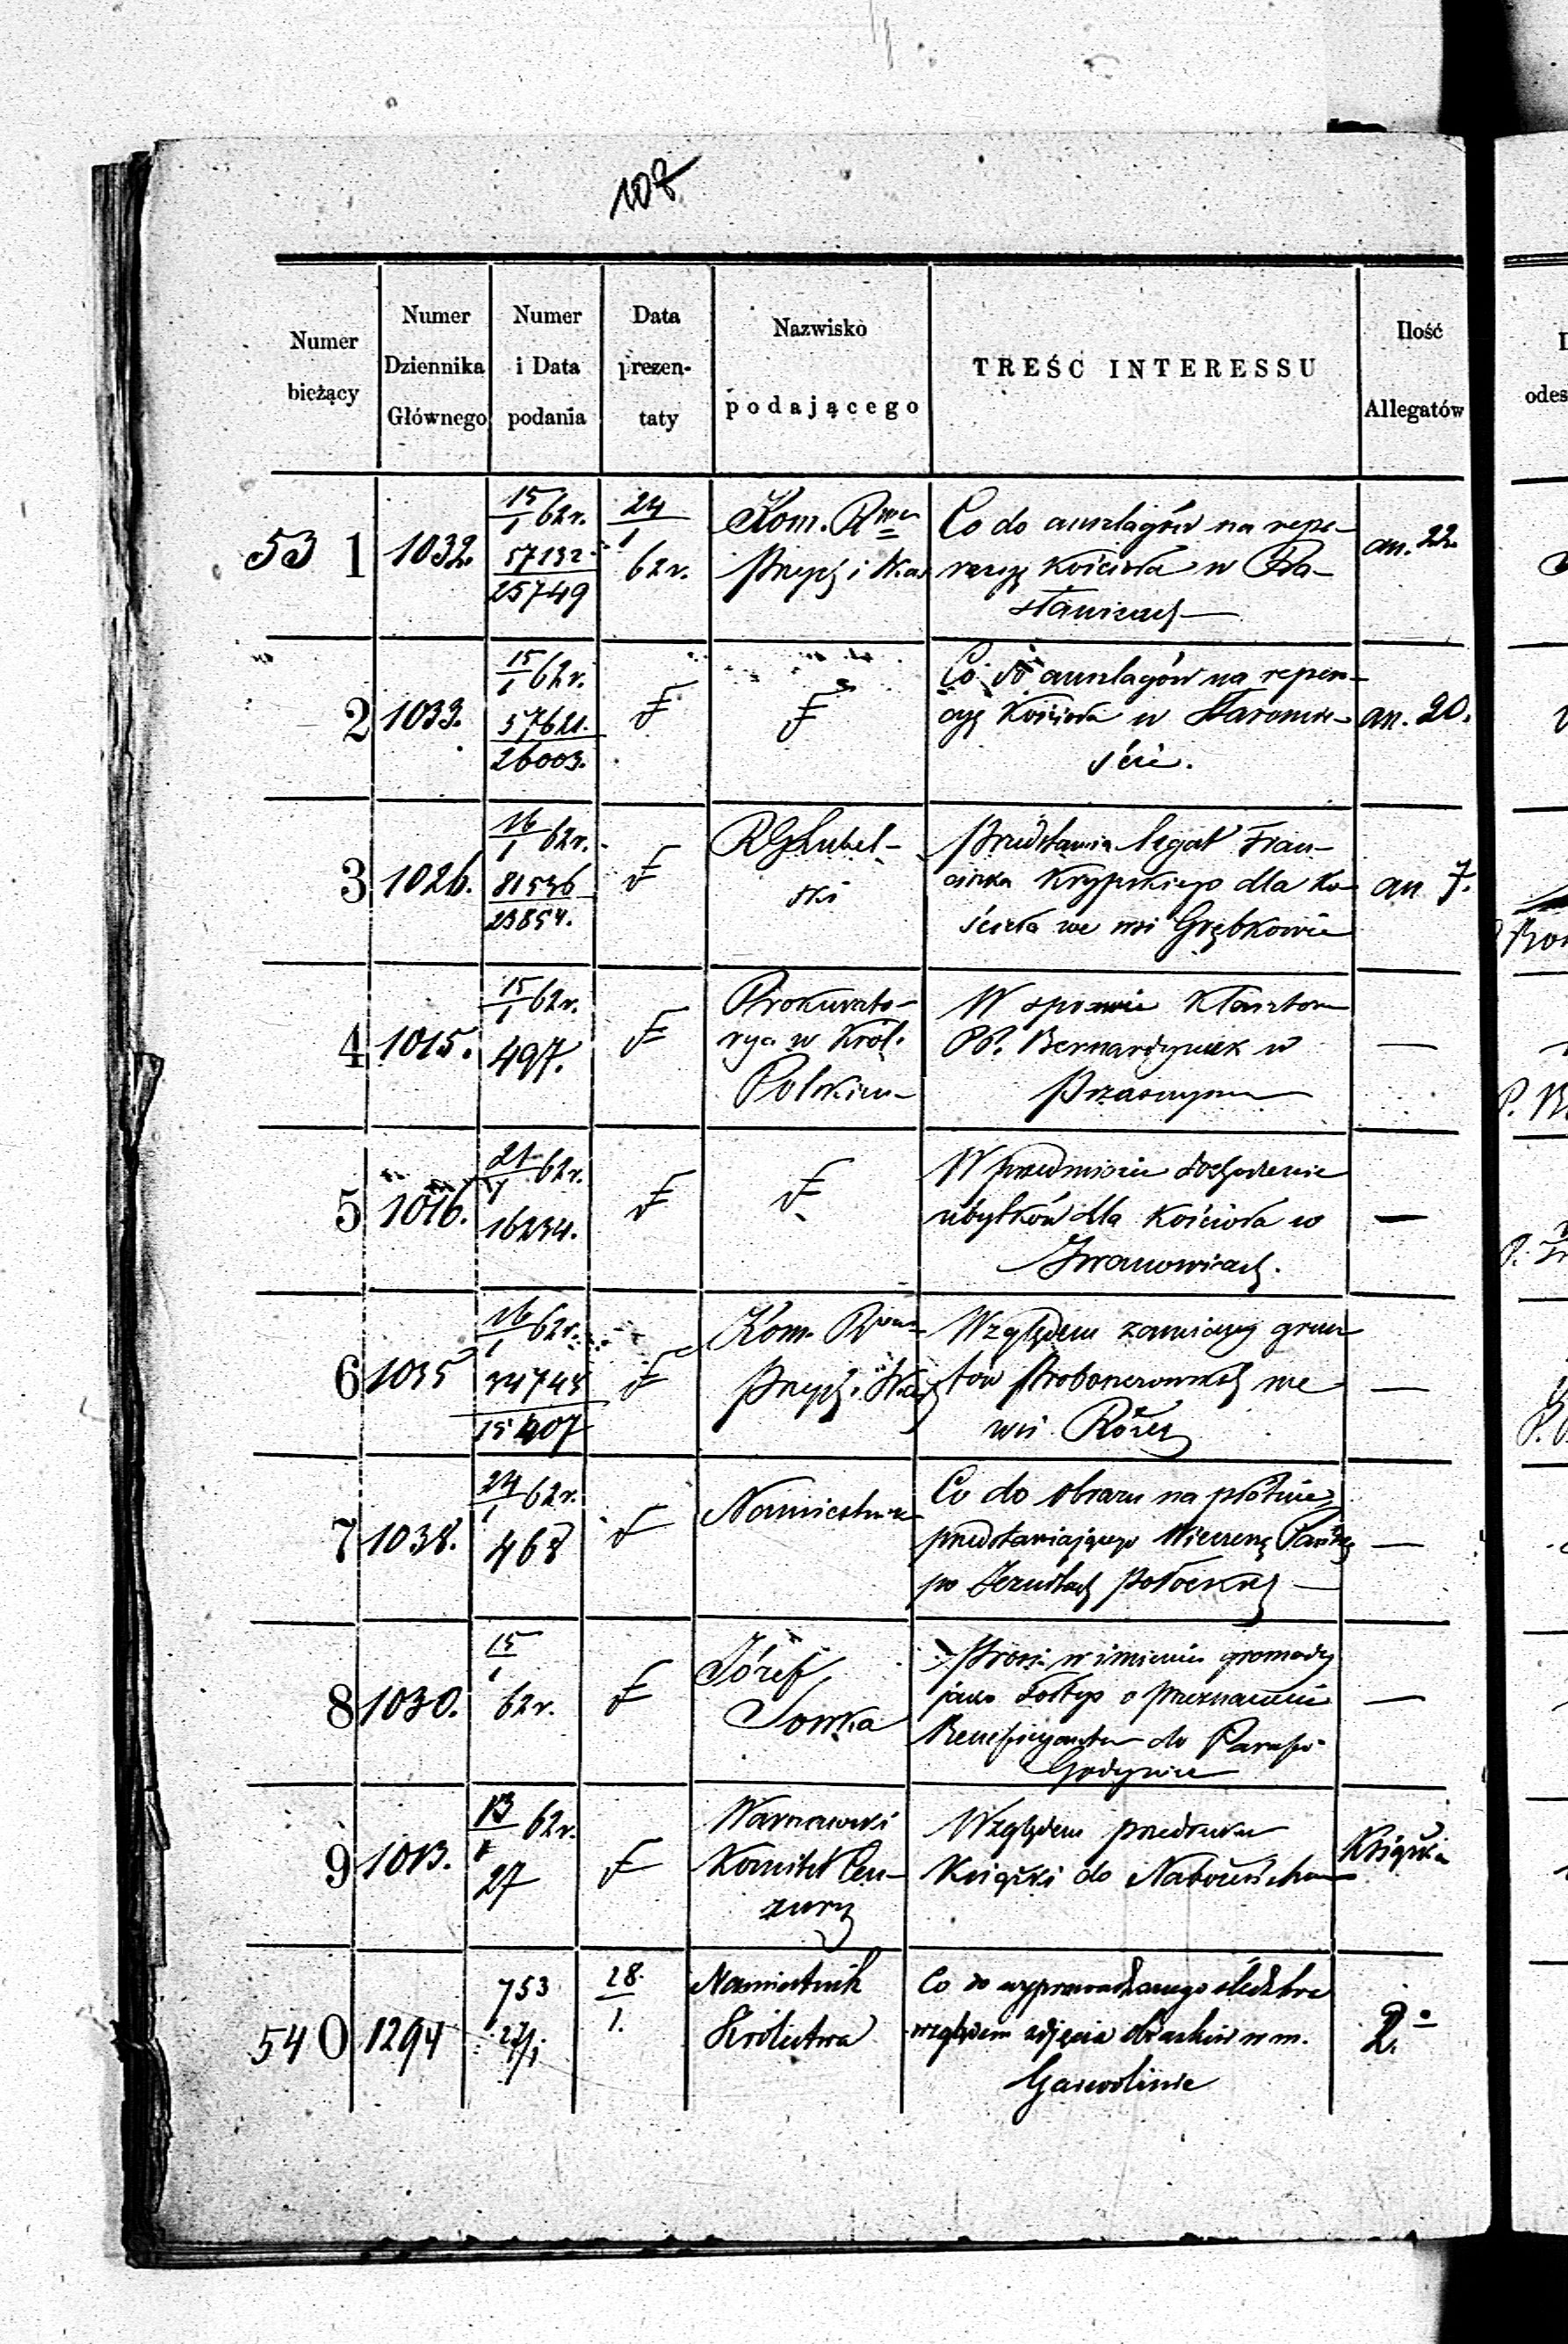 107
Numer bieżący
Numer Dziennika Głównego
Numer i Data podania
Data prezen- taty
Nazwisko podającego
TREŚĆ INTERESSU
Ilość Allegatów
53 1
1032.
15/1 62r.
57132
25749
24/1
62r.
Kom. Rwa
Przych i Skar
Co do anszlagów na repe-
racyę Kościoła w
sławicach
an. 22.
2
1033.
15/1 62r.
57621.
26003.
Co do anszlagów na repera-
cyę Kościoła w Staromie-
ście.
an. 20.
3
1026.
16/1 62r.
81536
23854.
RGLubel-
ski
Przedstawia legat Fran-
ciszka Krypskiego dla Ko-
ścioła we wsi Grębkowie
an 7.
4
1015.
15/1 62r.
497.
Prokurato-
rya w Król.
Polskiem
W sprawie Klasztoru
PP. Bernardynek w
Przasnyszu
—
5
1016.
21/1 62r.
16234.
W przedmiocie dochodzenia
ubytków dla Kościoła w
Iwanowicach.
—
6
1035
16/1 62r.
34745
15407
Kom. Rwa
Przych. i Skar
Względem zamiany grun
tów Proboszczowskich we
wsi
—
7
1038.
24/1 62r.
468
Namiestnik
Co do obrazu na płótnie,
przedstawiającego Wieczerzę Pańską
po Jezuitach Połockich
—
8
1030.
15/1
62r.
Józef
Sowka
Prosi w imieniu gromady
o przeznaczenie
Beneficyanta do Parafii
Godynice
—
9
1013.
13/1 62r.
27
Warszawski
Komitet Cen-
zury
Względem przedruku
Książki do Nabożeństwa
Książka
54 0
1294
753
27/1
28.
1.
Namiestnik
Królestwa
Co do wyprowadzanego śledztwa
względem zdjęcia obrazków w m.
Garwolinie
2.